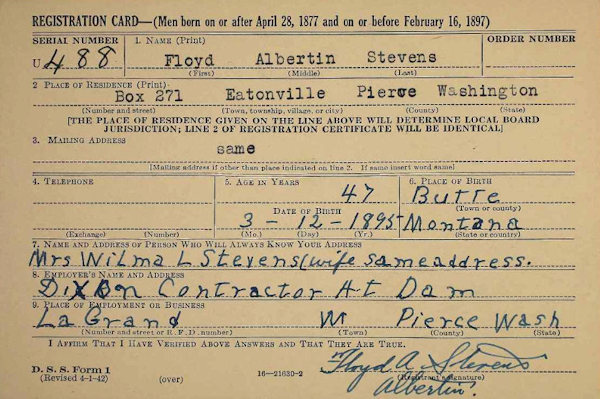 REGISTRATION CARD—(Men born on or after April 28, 1877 and on or before February 16, 1897)
SERIAL NUMBER 1. NAME (Print) ORDER NUMBER
U 488 Floyd Albertin Stevens
(First) (Middle) (Last)
2 PLACE OF RESIDENCE (Print)
Box 271 Eatonville Pierce Washington
(Number and street) (Town, township, village, or city) (County) (State)
[THE PLACE OF RESIDENCE GIVEN ON THE LINE ABOVE WILL DETERMINE LOCAL BOARD
JURISDICTION; LINE 2 OF REGISTRATION CERTIFICATE WILL BE IDENTICAL]
3. MAILING ADDRESS
same
[Mailing address if other than place indicated on line 2. If same insert word same]
4. TELEPHONE 5. AGE IN YEARS 6. PLACE OF BIRTH
47 Butte
DATE OF BIRTH (Town or county)
3 - 12 - 1895 Montana
(Exchange) (Number) (Mo.) (Day) (Yr.) (State or country)
7. NAME AND ADDRESS OF PERSON WHO WILL ALWAYS KNOW YOUR ADDRESS
Mrs Wilma L Stevens (wife same address.
8. EMPLOYER'S NAME AND ADDRESS
Dixon Contractor At Dam
9. PLACE OF EMPLOYMENT OR BUSINESS
La Grand Pierce Wash
(Number and street or R. F. D. number) (Town) (County) (State)
I AFFIRM THAT I HAVE VERIFIED ABOVE ANSWERS AND THAT THEY ARE TRUE.
D. S. S. Form 1 Floyd A. Stevens
(Revised 4-1-42) (over) 16—21630-2 (Registrant's signature)
Albertin.